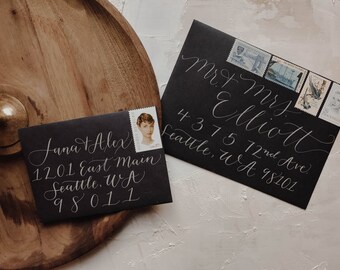 Luna & Alex
1201 East Main
Seattle, WA
98011
Mr. & Mrs.
Elliott
4375 72nd Ave
Seattle, WA 98101